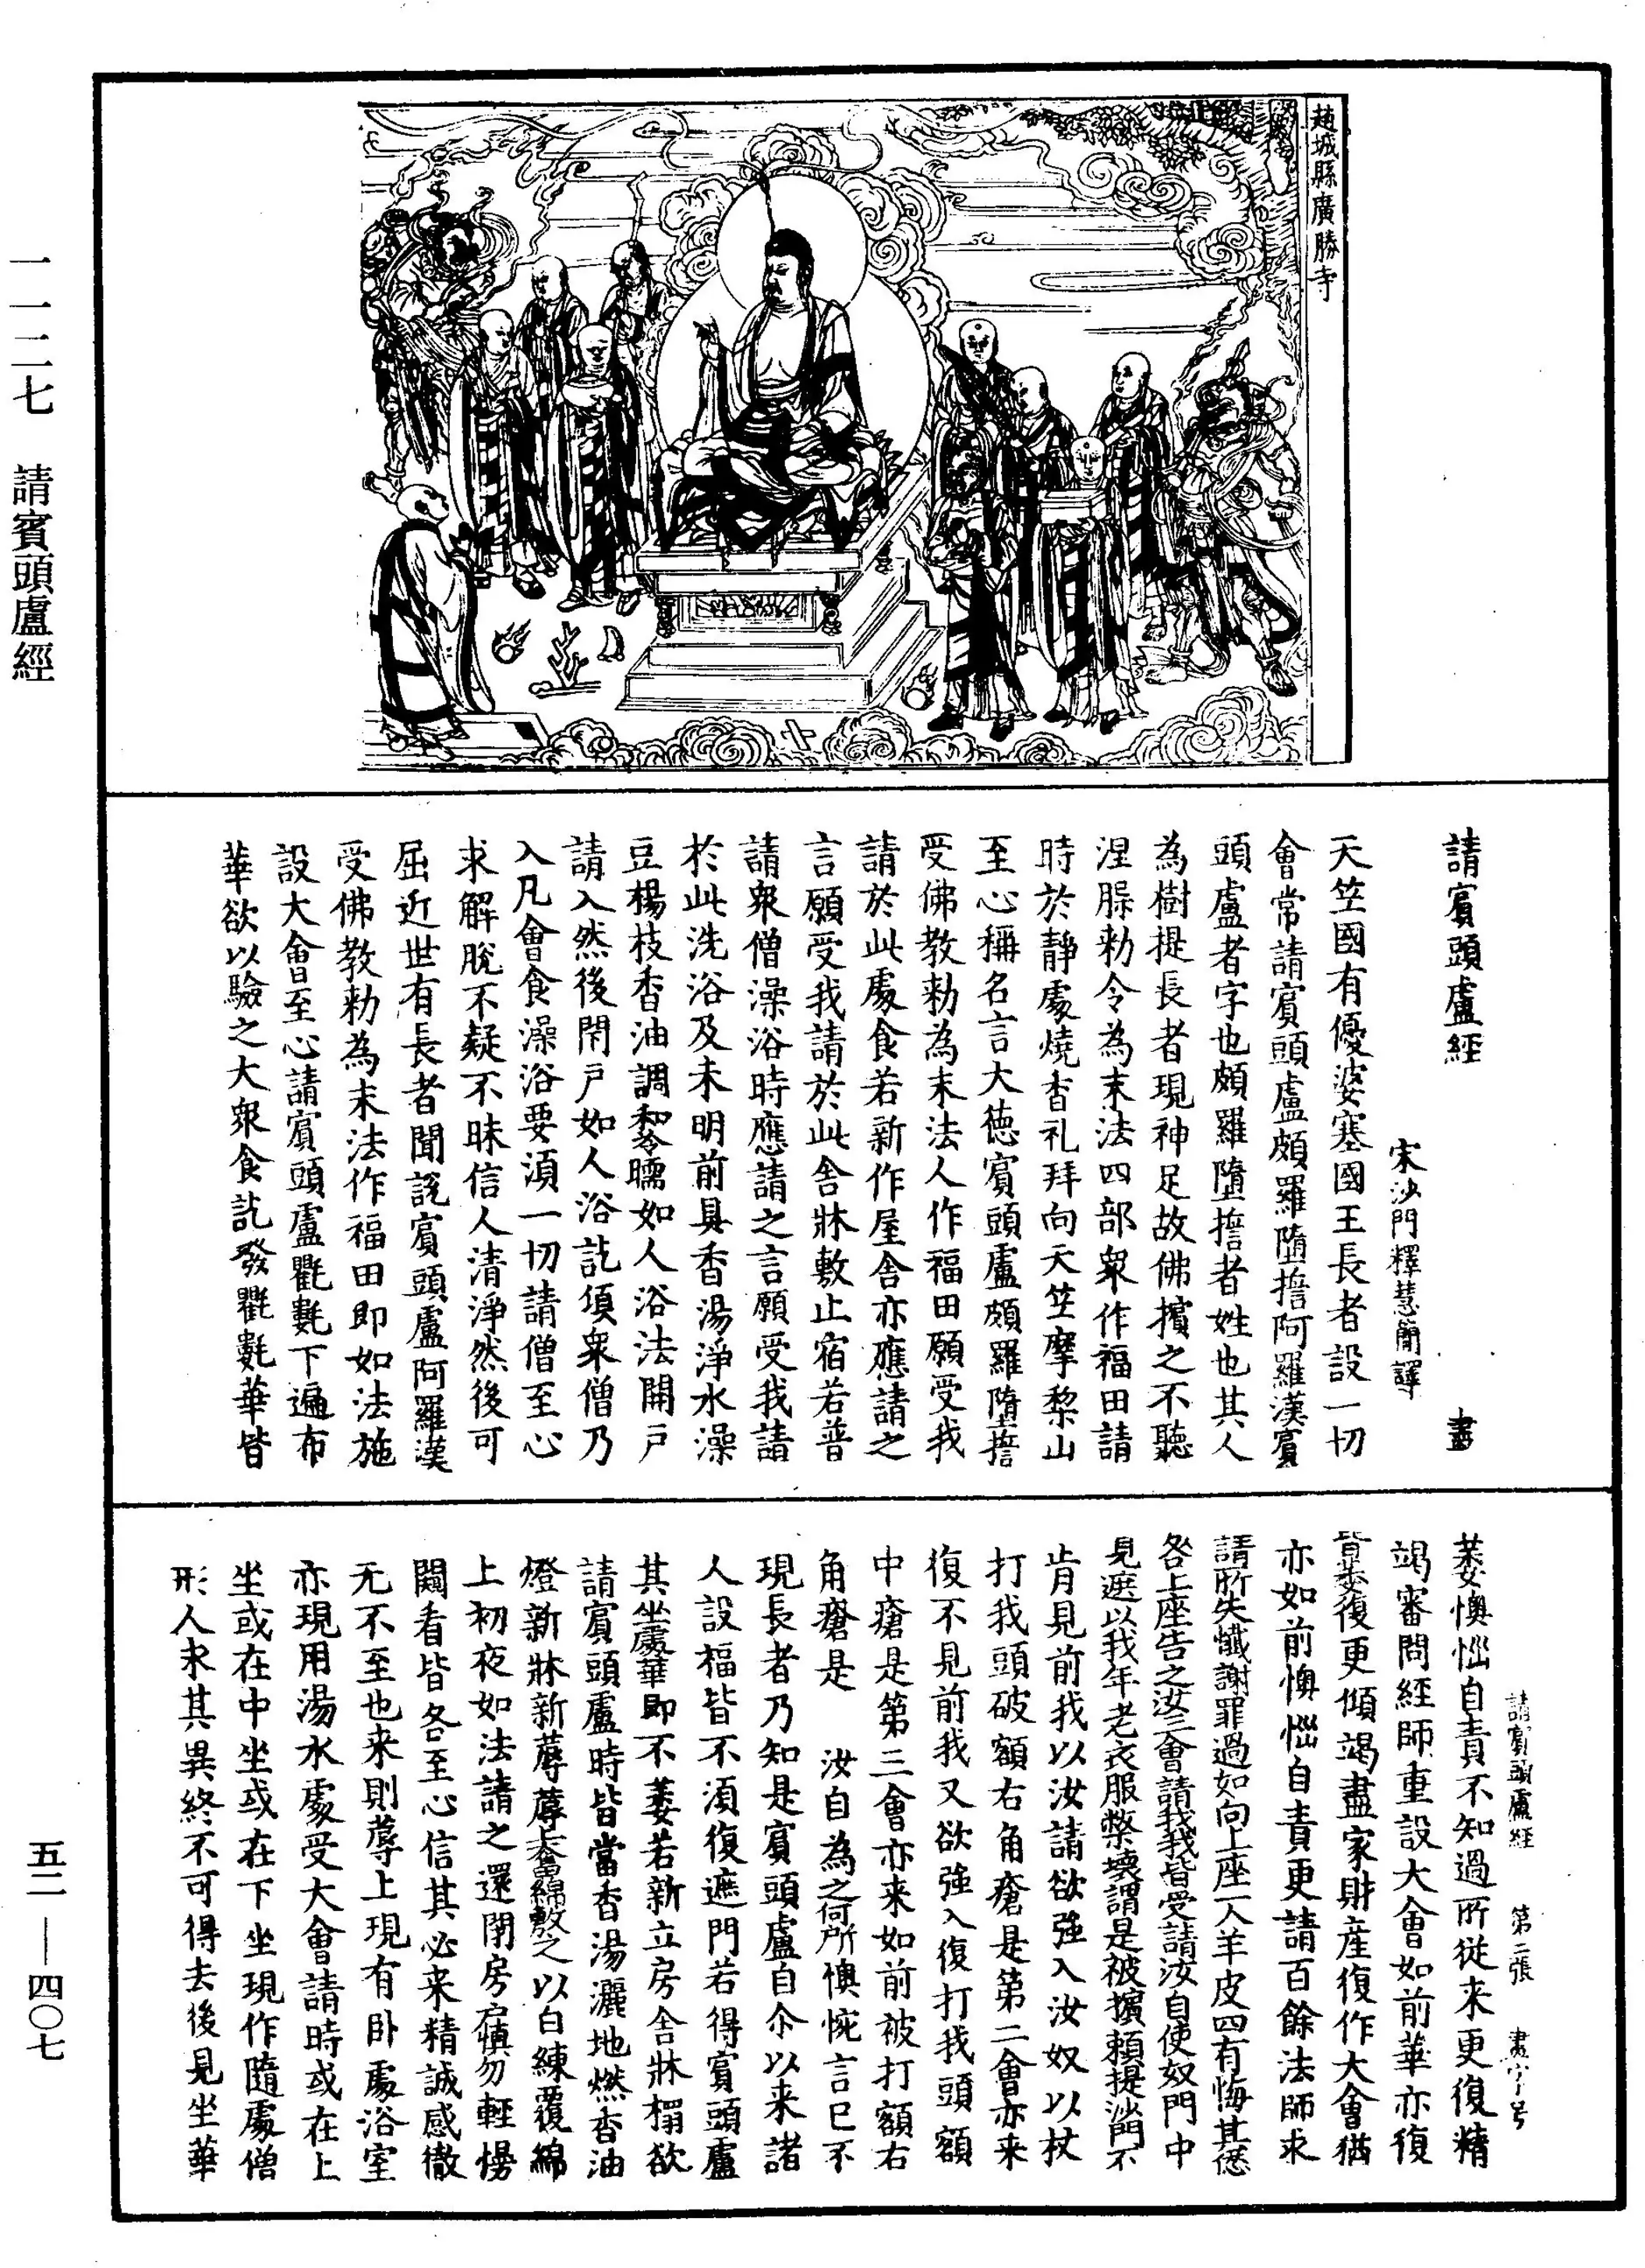 趙城縣廣勝寺
請賓頭盧經 畫
宋沙門釋慧簡譯
天竺國有優婆塞國王長者設一切
會常請賓頭盧頗羅墮擔阿羅漢賓
頭盧者字也頗羅墮擔者姓也其人
為樹提長者現神足故佛擯之不聽
涅槃勑令為末法四部眾作福田請
時於靜處燒香礼拜向天竺摩黎山
至心稱名言大德賓頭盧頗羅墮擔
受佛教勑為末法人作福田願受我
請於此處食若新作屋舍亦應請之
言願受我請於此舍牀敷止宿若普
請眾僧澡浴時應請之言願受我請
於此洗浴及未明前具香湯淨水澡
豆楊枝香油調和冷暖如人浴法開戶
請入然後閇戶如人浴訖湏眾僧乃
入凡會食澡浴要湏一切請僧至心
求解脫不疑不昧信人清淨然後可
屈近世有長者聞說賓頭盧阿羅漢
受佛教勑為末法作福田即如法施
設大會至心請賓頭盧氍毹下遍布
華欲以驗之大眾食訖發氍毹華皆
請賓頭盧經 第二張 畫字号
萎懊惱自責不知過所從来更復精
竭審問經師重設大會如前華亦復
皆萎復更傾竭盡家財産復作大會猶
亦如前懊惱自責更請百餘法師求
請所失懺謝罪過如向上座一人羊皮四有悔其愆
咎上座告之汝三會請我我皆受請汝自使奴門中
見遮以我年老衣服弊壊謂是被擯頼提沙門不
肯見前我以汝請欲強入汝奴以杖
打我頭破額右角瘡是第二會亦来
復不見前我又欲強入復打我頭額
中瘡是第三會亦来如前被打額右
角瘡是 汝自為之何所懊惋言已不
現長者乃知是賓頭盧自尒以来諸
人設福皆不湏復遮門若得賓頭盧
其坐處華即不萎若新立房舍牀榻欲
請賓頭盧時皆當香湯灑地燃香油
燈新牀新蓐蓐上奮綿敷之以白練覆綿
上初夜如法請之還閇房戶慎勿輕慢
闚看皆各至心信其必来精誠感徹
无不至也来則蓐上現有臥處浴室
亦現用湯水處受大會請時或在上
坐或在中坐或在下坐現作隨處僧
形人求其異終不可得去後見坐華
一一二七 請賓頭盧經
五二—四〇七